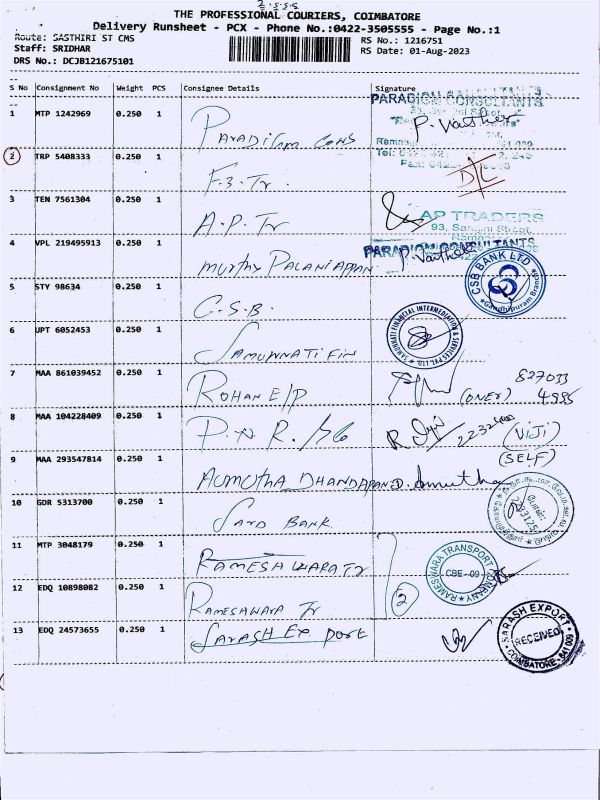 THE PROFESSIONAL COURIERS, COIMBATORE
Delivery Runsheet - PCX - Phone No.:0422-3505555 - Page No.:1
Route: SASTHIRI ST CMS RS No.: 1216751
Staff: SRIDHAR RS Date: 01-Aug-2023
DRS No.: DCJB121675101
S No Consignment No Weight PCS Consignee Details Signature
PARADIGM CONSULTANTS
1 MTP 1242969 0.250 1 Paradigm Cons P. Vasthe
2 TRP 5408333 0.250 1 F.3. Tr. D/L
3 TEN 7561304 0.250 1 A.P. Tr
AP TRADERS
93, Sastri Street,
4 VPL 219495913 0.250 1 Murthy Palaniappan
PARADIGM CONSULTANTS
CSB BANK LTD
Gandhipuram Branch
5 STY 98634 0.250 1 C.S.B.
6 UPT 6052453 0.250 1 Samunnati Fin
SAMUNNATI FINANCIAL INTERMEDIATION & SERVICES PVT. LTD.
7 MAA 861039452 0.250 1 Rohan E/P (oner) 827033
4986
8 MAA 104228409 0.250 1 P.N.R. (VIJI)
9 MAA 293547814 0.250 1 Aumutha Dhandapani D. Amutha (SELF)
10 GDR 5313700 0.250 1 Sard Bank
2233125
11 MTP 3048179 0.250 1 Rameshwara Tr
RAMESWARA TRANSPORT COMPANY
CBE - 09
12 EDQ 10898082 0.250 1 Rameswara Tr 2
13 EDQ 24573655 0.250 1 Sarash Ex port
SARASH EXPORT
RECEIVED
COIMBATORE - 641 009